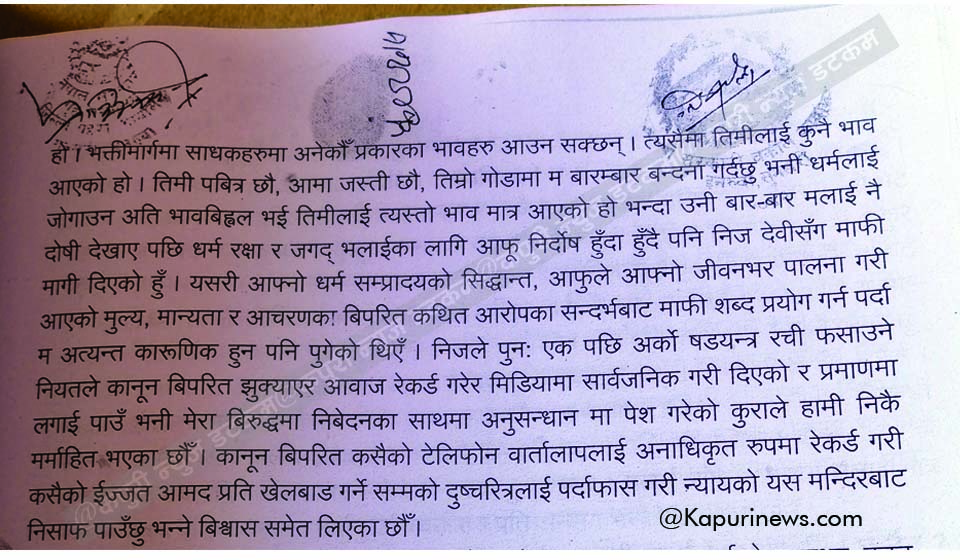 हो । भक्तीमार्गमा साधकहरुमा अनेकौँ प्रकारका भावहरु आउन सक्छन् । त्यसैमा तिमीलाई कुनै भाव
आएको हो । तिमी पबित्र छौ, आमा जस्ती छौ, तिम्रो गोडामा म बारम्बार बन्दना गर्दछु भनी धर्मलाई
जोगाउन अति भावबिह्वल भई तिमीलाई त्यस्तो भाव मात्र आएको हो भन्दा उनी बार-बार मलाई नै
दोषी देखाए पछि धर्म रक्षा र जगद् भलाईका लागि आफू निर्दोष हुँदा हुँदै पनि निज देवीसँग माफी
मागी दिएको हुँ । यसरी आफ्नो धर्म सम्प्रादयको सिद्धान्त, आफुले आफ्नो जीवनभर पालना गरी
आएको मुल्य, मान्यता र आचरणका बिपरित कथित आरोपका सन्दर्भबाट माफी शब्द प्रयोग गर्न पर्दा
म अत्यन्त कारूणिक हुन पनि पुगेको थिएँ । निजले पुनः एक पछि अर्को षडयन्त्र रची फसाउने
नियतले कानून बिपरित झुक्याएर आवाज रेकर्ड गरेर मिडियामा सार्वजनिक गरी दिएको र प्रमाणमा
लगाई पाउँ भनी मेरा बिरुद्धमा निबेदनका साथमा अनुसन्धान मा पेश गरेको कुराले हामी निकै
मर्माहित भएका छौँ । कानून बिपरित कसैको टेलिफोन वार्तालापलाई अनाधिकृत रुपमा रेकर्ड गरी
कसैको ईज्जत आमद प्रति खेलबाड गर्ने सम्मको दुष्चरित्रलाई पर्दाफास गरी न्यायको यस मन्दिरबाट
निसाफ पाउँछु भन्ने बिश्वास समेत लिएका छौँ ।
@Kapurinews.com